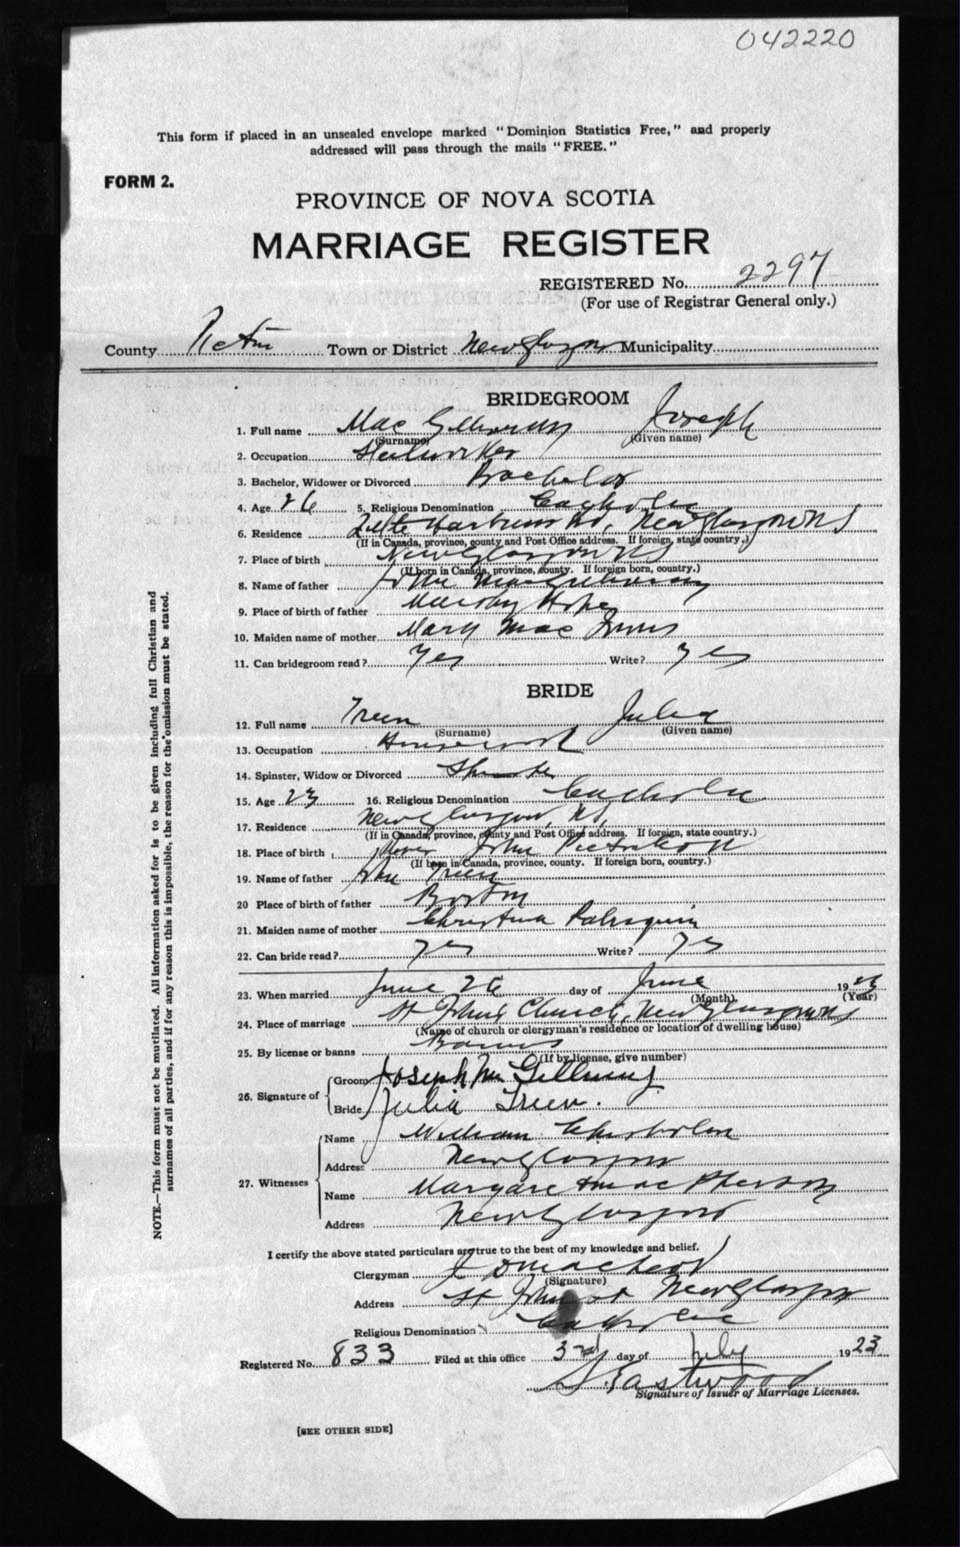 042220
This form if placed in an unsealed envelope marked "Dominion Statistics Free," and properly
addressed will pass through the mails "FREE."
FORM 2.
PROVINCE OF NOVA SCOTIA
MARRIAGE REGISTER
REGISTERED No. 2297
(For use of Registrar General only.)
County Pictou Town or District New Glasgow Municipality
BRIDEGROOM
1. Full name Mac Gillivray Joseph
(Surname) (Given name)
2. Occupation Steelworker
3. Bachelor, Widower or Divorced Bachelor
4. Age 26 5. Religious Denomination Catholic
6. Residence Little Harbour Rd, New Glasgow NS
(If in Canada, province, county and Post Office address. If foreign, state country.)
7. Place of birth New Glasgow NS
(If born in Canada, province, county. If foreign born, country.)
8. Name of father John MacGillivray
9. Place of birth of father
10. Maiden name of mother Mary Mac Innis
11. Can bridegroom read? Yes Write? Yes
BRIDE
12. Full name Treen Julia
(Surname) (Given name)
13. Occupation Housework
14. Spinster, Widow or Divorced Spinster
15. Age 23 16. Religious Denomination Catholic
17. Residence New Glasgow, NS,
(If in Canada, province, county and Post Office address. If foreign, state country.)
18. Place of birth River John Pictou Co N
(If born in Canada, province, county. If foreign born, country.)
19. Name of father John Treen
20 Place of birth of father Boston
21. Maiden name of mother Christina
22. Can bride read? Yes Write? Yes
23. When married June 26 day of June 1923
(Month) (Year)
24. Place of marriage St John's Church, New Glasgow NS
(Name of church or clergyman's residence or location of dwelling house)
25. By license or banns Banns
(If by license, give number)
26. Signature of Groom Joseph Mc Gillivray
Bride Julia Treen.
27. Witnesses Name William Chisholm
Address New Glasgow
Name Margaret MacPherson
Address New Glasgow
I certify the above stated particulars are true to the best of my knowledge and belief.
Clergyman J D MacLeod
(Signature)
Address St John St New Glasgow
Religious Denomination Catholic
Registered No. 833 Filed at this office 3rd day of July 1923
S Eastwood
Signature of Issuer of Marriage Licenses.
[SEE OTHER SIDE]
NOTE.—This form must not be mutilated. All information asked for is to be given including full Christian and
surnames of all parties, and if for any reason this is impossible, the reason for the omission must be stated.